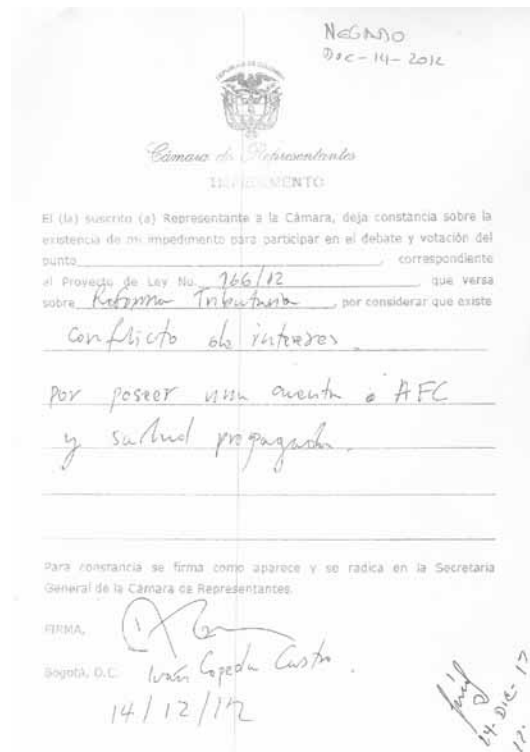 NEGADO
DIC-14-2012
REPUBLICA DE COLOMBIA
Cámara de Representantes
IMPEDIMENTO
El (la) suscrito (a) Representante a la Cámara, deja constancia sobre la
existencia de mi impedimento para participar en el debate y votación del
punto correspondiente
al Proyecto de Ley No. 166/12 que versa
sobre Reforma Tributaria, por considerar que existe
Conflicto de intereses
por poseer una cuenta AFC
y salud prepagada.
Para constancia se firma como aparece y se radica en la Secretaria
General de la Cámara de Representantes.
FIRMA,
Bogotá, D.C. Iván Cepeda Castro.
14/12/12
14-DIC-12